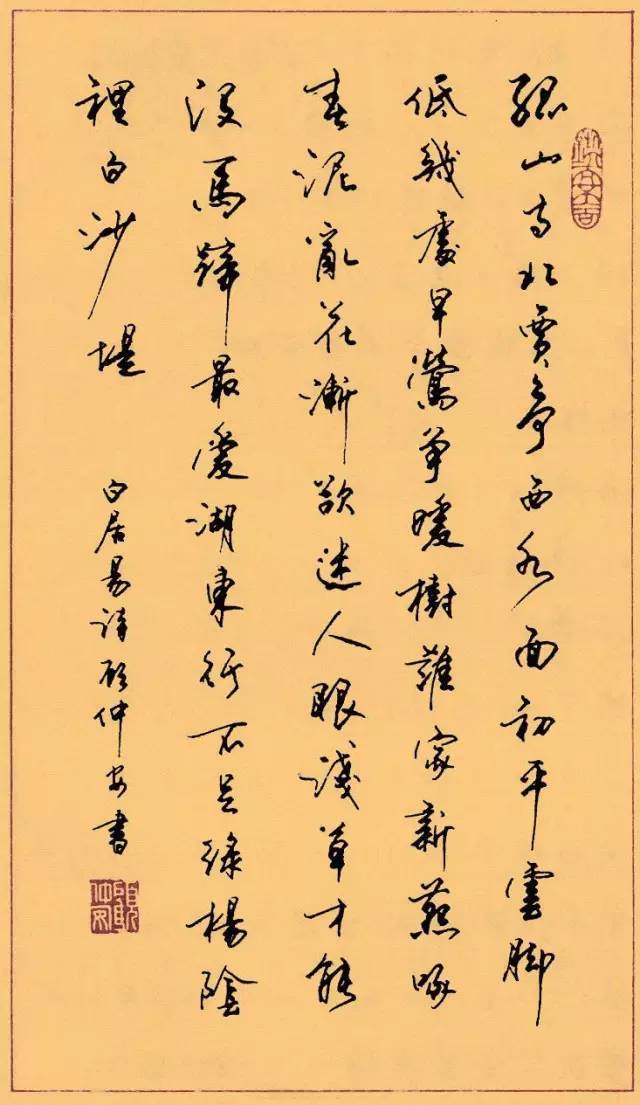 孤山寺北賈亭西水面初平雲脚
低幾處早鶯爭暖樹誰家新燕啄
春泥亂花漸欲迷人眼淺草才能
没馬蹄最愛湖東行不足綠楊陰
裡白沙堤
白居易詩顧仲安書
顧仲安